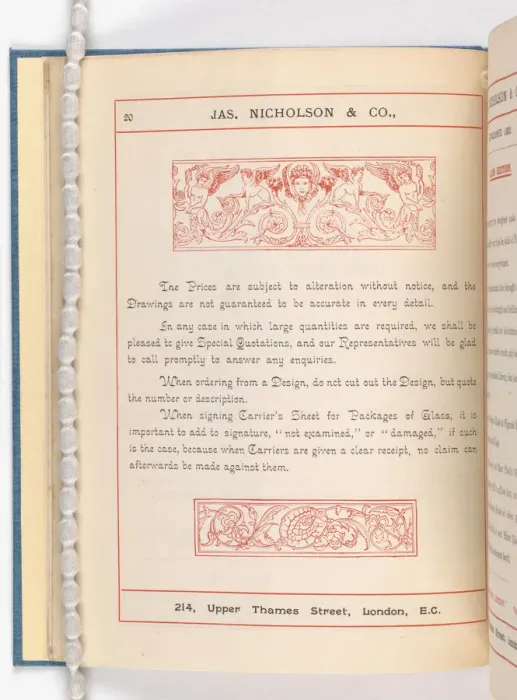 20
JAS. NICHOLSON & CO.,
The Prices are subject to alteration without notice, and the
Drawings are not guaranteed to be accurate in every detail.
In any case in which large quantities are required, we shall be
pleased to give Special Quotations, and our Representatives will be glad
to call promptly to answer any enquiries.
When ordering from a Design, do not cut out the Design, but quote
the number or description.
When signing Carrier's Sheet for Packages of Glass, it is
important to add to signature, "not examined," or "damaged," if such
is the case, because when Carriers are given a clear receipt, no claim can
afterwards be made against them.
214, Upper Thames Street, London, E.C.